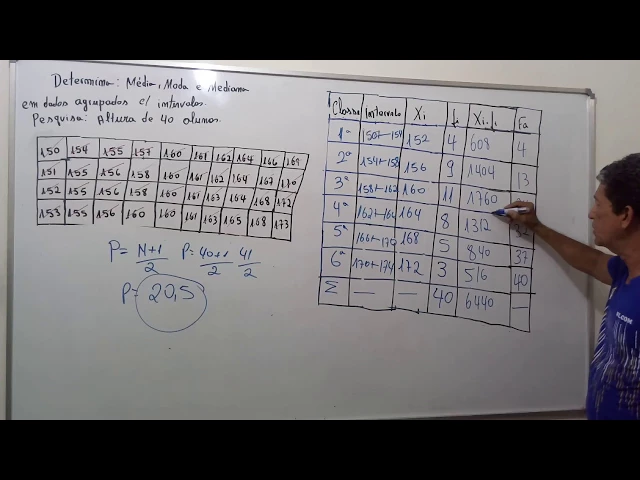 Determina: Média, Moda e Mediana
em dados agrupados c/ intervalos.
Pesquisa: Altura de 40 alunos.
150 154 155 157 160 161 162 164 166 169
151 155 156 158 160 161 162 164 167 170
152 155 156 158 160 161 163 164 168 172
153 155 156 160 160 161 163 165 168 173
P= N+1/2 P= 40+1/2 41/2
P= 20,5
Classe Intervalo Xi fi Xi.fi Fa
1ª 150⊢154 152 4 608 4
2ª 154⊢158 156 9 1404 13
3ª 158⊢162 160 11 1760
4ª 162⊢166 164 8 1312 32
5ª 166⊢170 168 5 840 37
6ª 170⊢174 172 3 516 40
Σ — — 40 6440 —